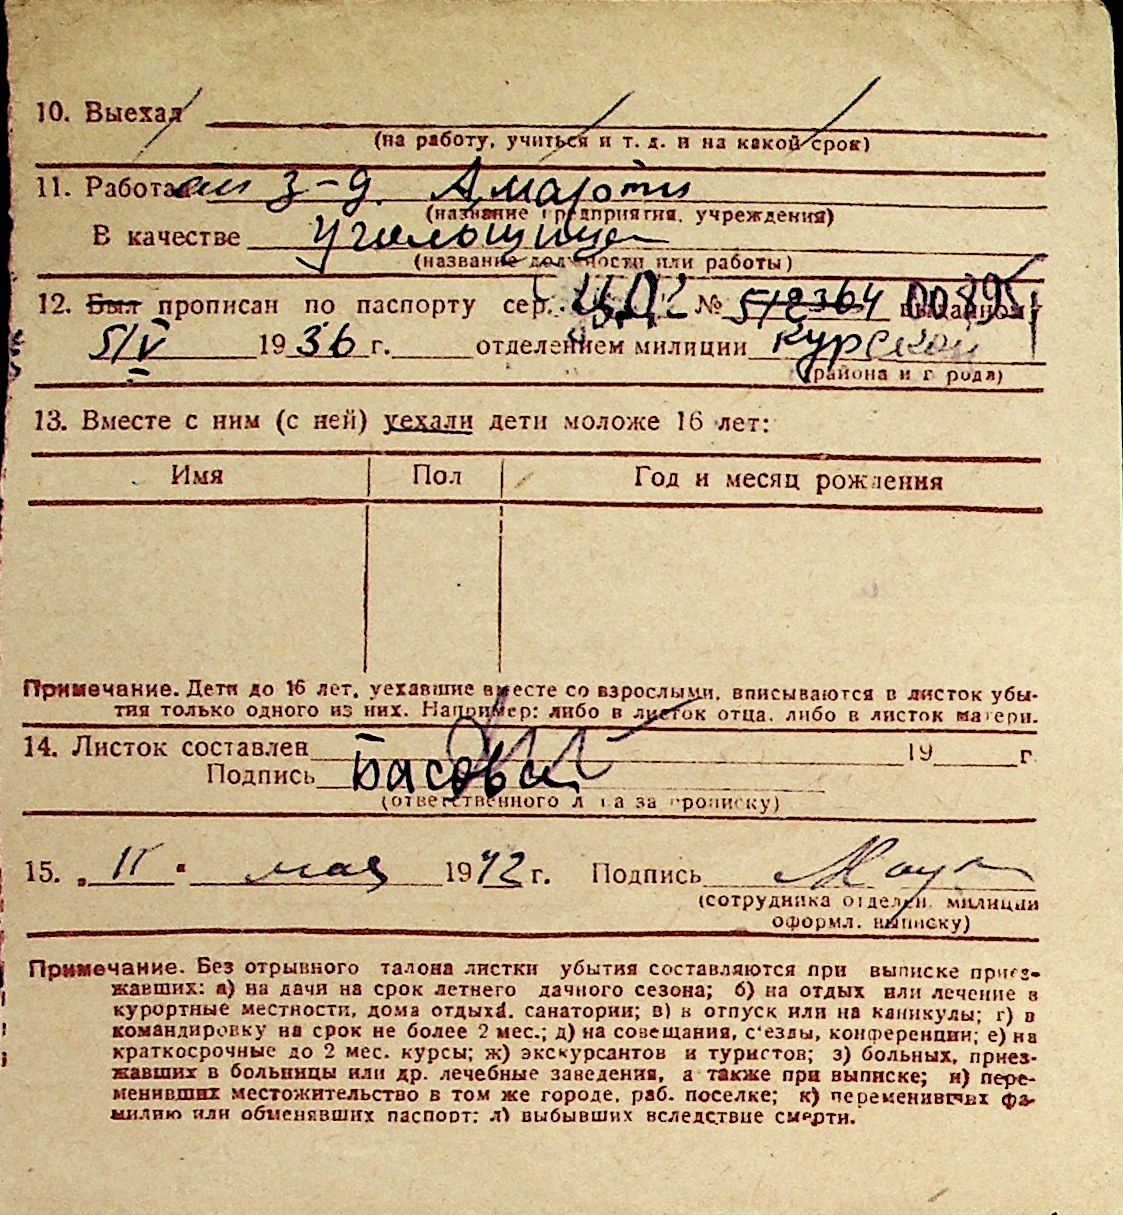 10. Выехал
(на работу, учиться и т. д. и на какой срок)
11. Работал з-д.
(название предприятия, учреждения)
В качестве
(название должности или работы)
12. Был прописан по паспорту сер. № 512364 выданном
5/V 1936 г. отделением милиции Курской
(района и города)
13. Вместе с ним (с ней) уехали дети моложе 16 лет:
Имя Пол Год и месяц рождения
Примечание. Дети до 16 лет, уехавшие вместе со взрослыми, вписываются в листок убы-
тия только одного из них. Например: либо в листок отца, либо в листок матери.
14. Листок составлен 19 г.
Подпись Басова
(ответственного лица за прописку)
15. „ 11 " мая 1942 г. Подпись
(сотрудника отделен. милиции
оформл. выписку)
Примечание. Без отрывного талона листки убытия составляются при выписке приез-
жавших: а) на дачи на срок летнего дачного сезона; б) на отдых или лечение в
курортные местности, дома отдыха, санатории; в) в отпуск или на каникулы; г) в
командировку на срок не более 2 мес.; д) на совещания, с'езды, конференции; е) на
краткосрочные до 2 мес. курсы; ж) экскурсантов и туристов; з) больных, приез-
жавших в больницы или др. лечебные заведения, а также при выписке; и) пере-
менивших местожительство в том же городе, раб. поселке; к) переменивших фа-
милию или обменявших паспорт; л) выбывших вследствие смерти.